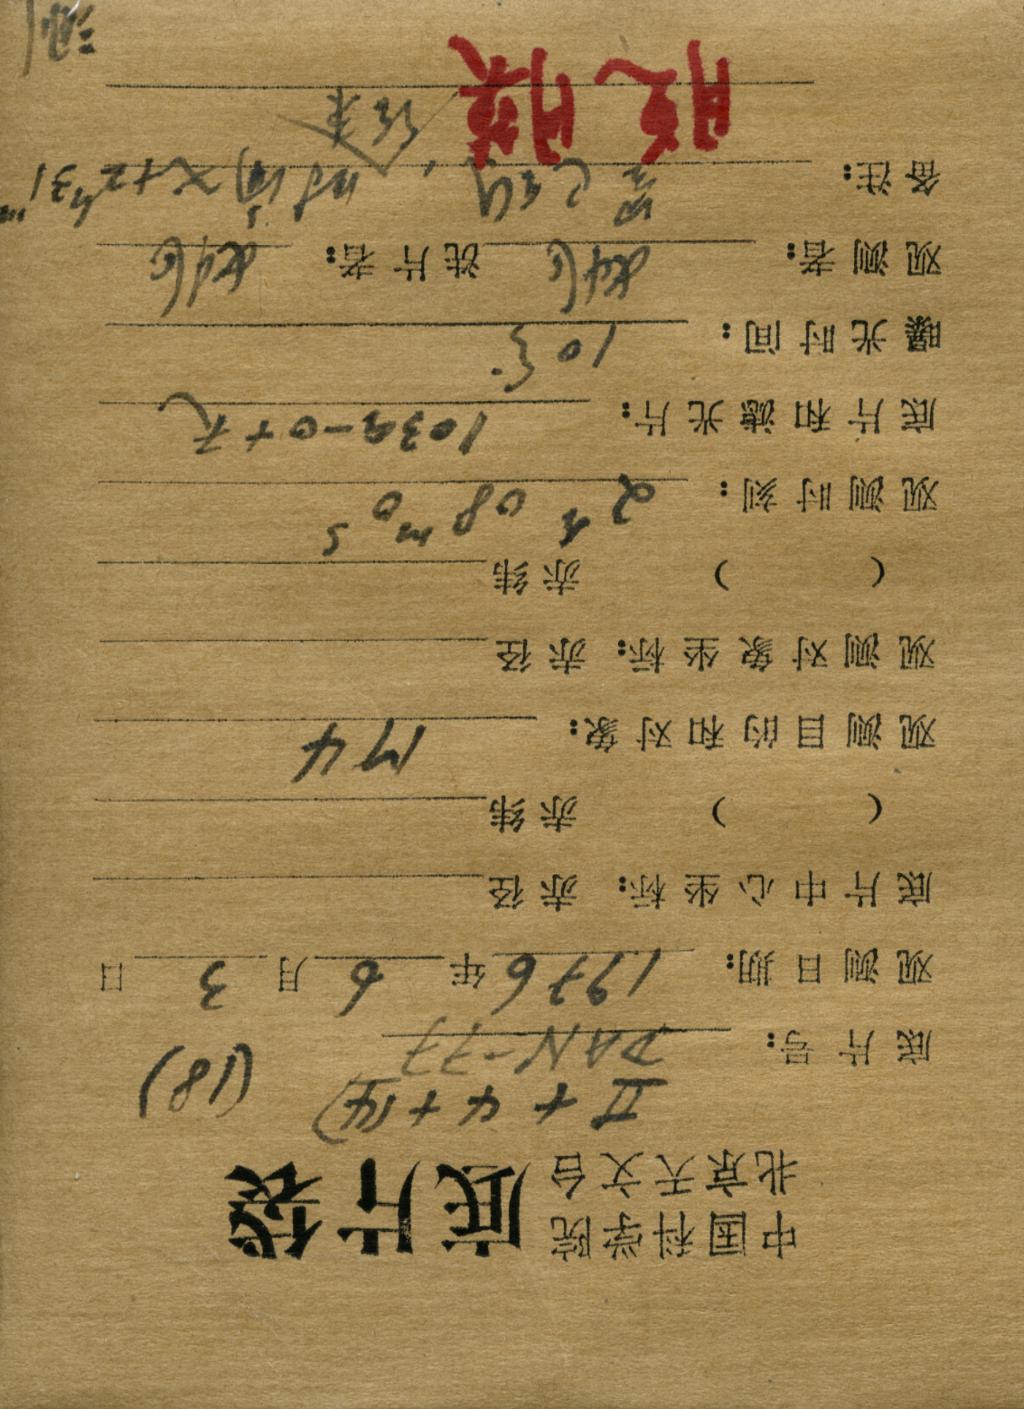 中国科学院
北京天文台 底片袋
II + 4 + (14) (18)
底片号: DAN-77
观测日期: 1976年 6月 3日
底片中心坐标: 赤径
( ) 赤纬
观测目的和对象: M4
观测对象坐标: 赤径
( ) 赤纬
观测时刻: 2h 08m 0s
底片和滤光片: 103a-O+无
曝光时间: 10分
观测者: 洗片者:
备注:
脱膜
测